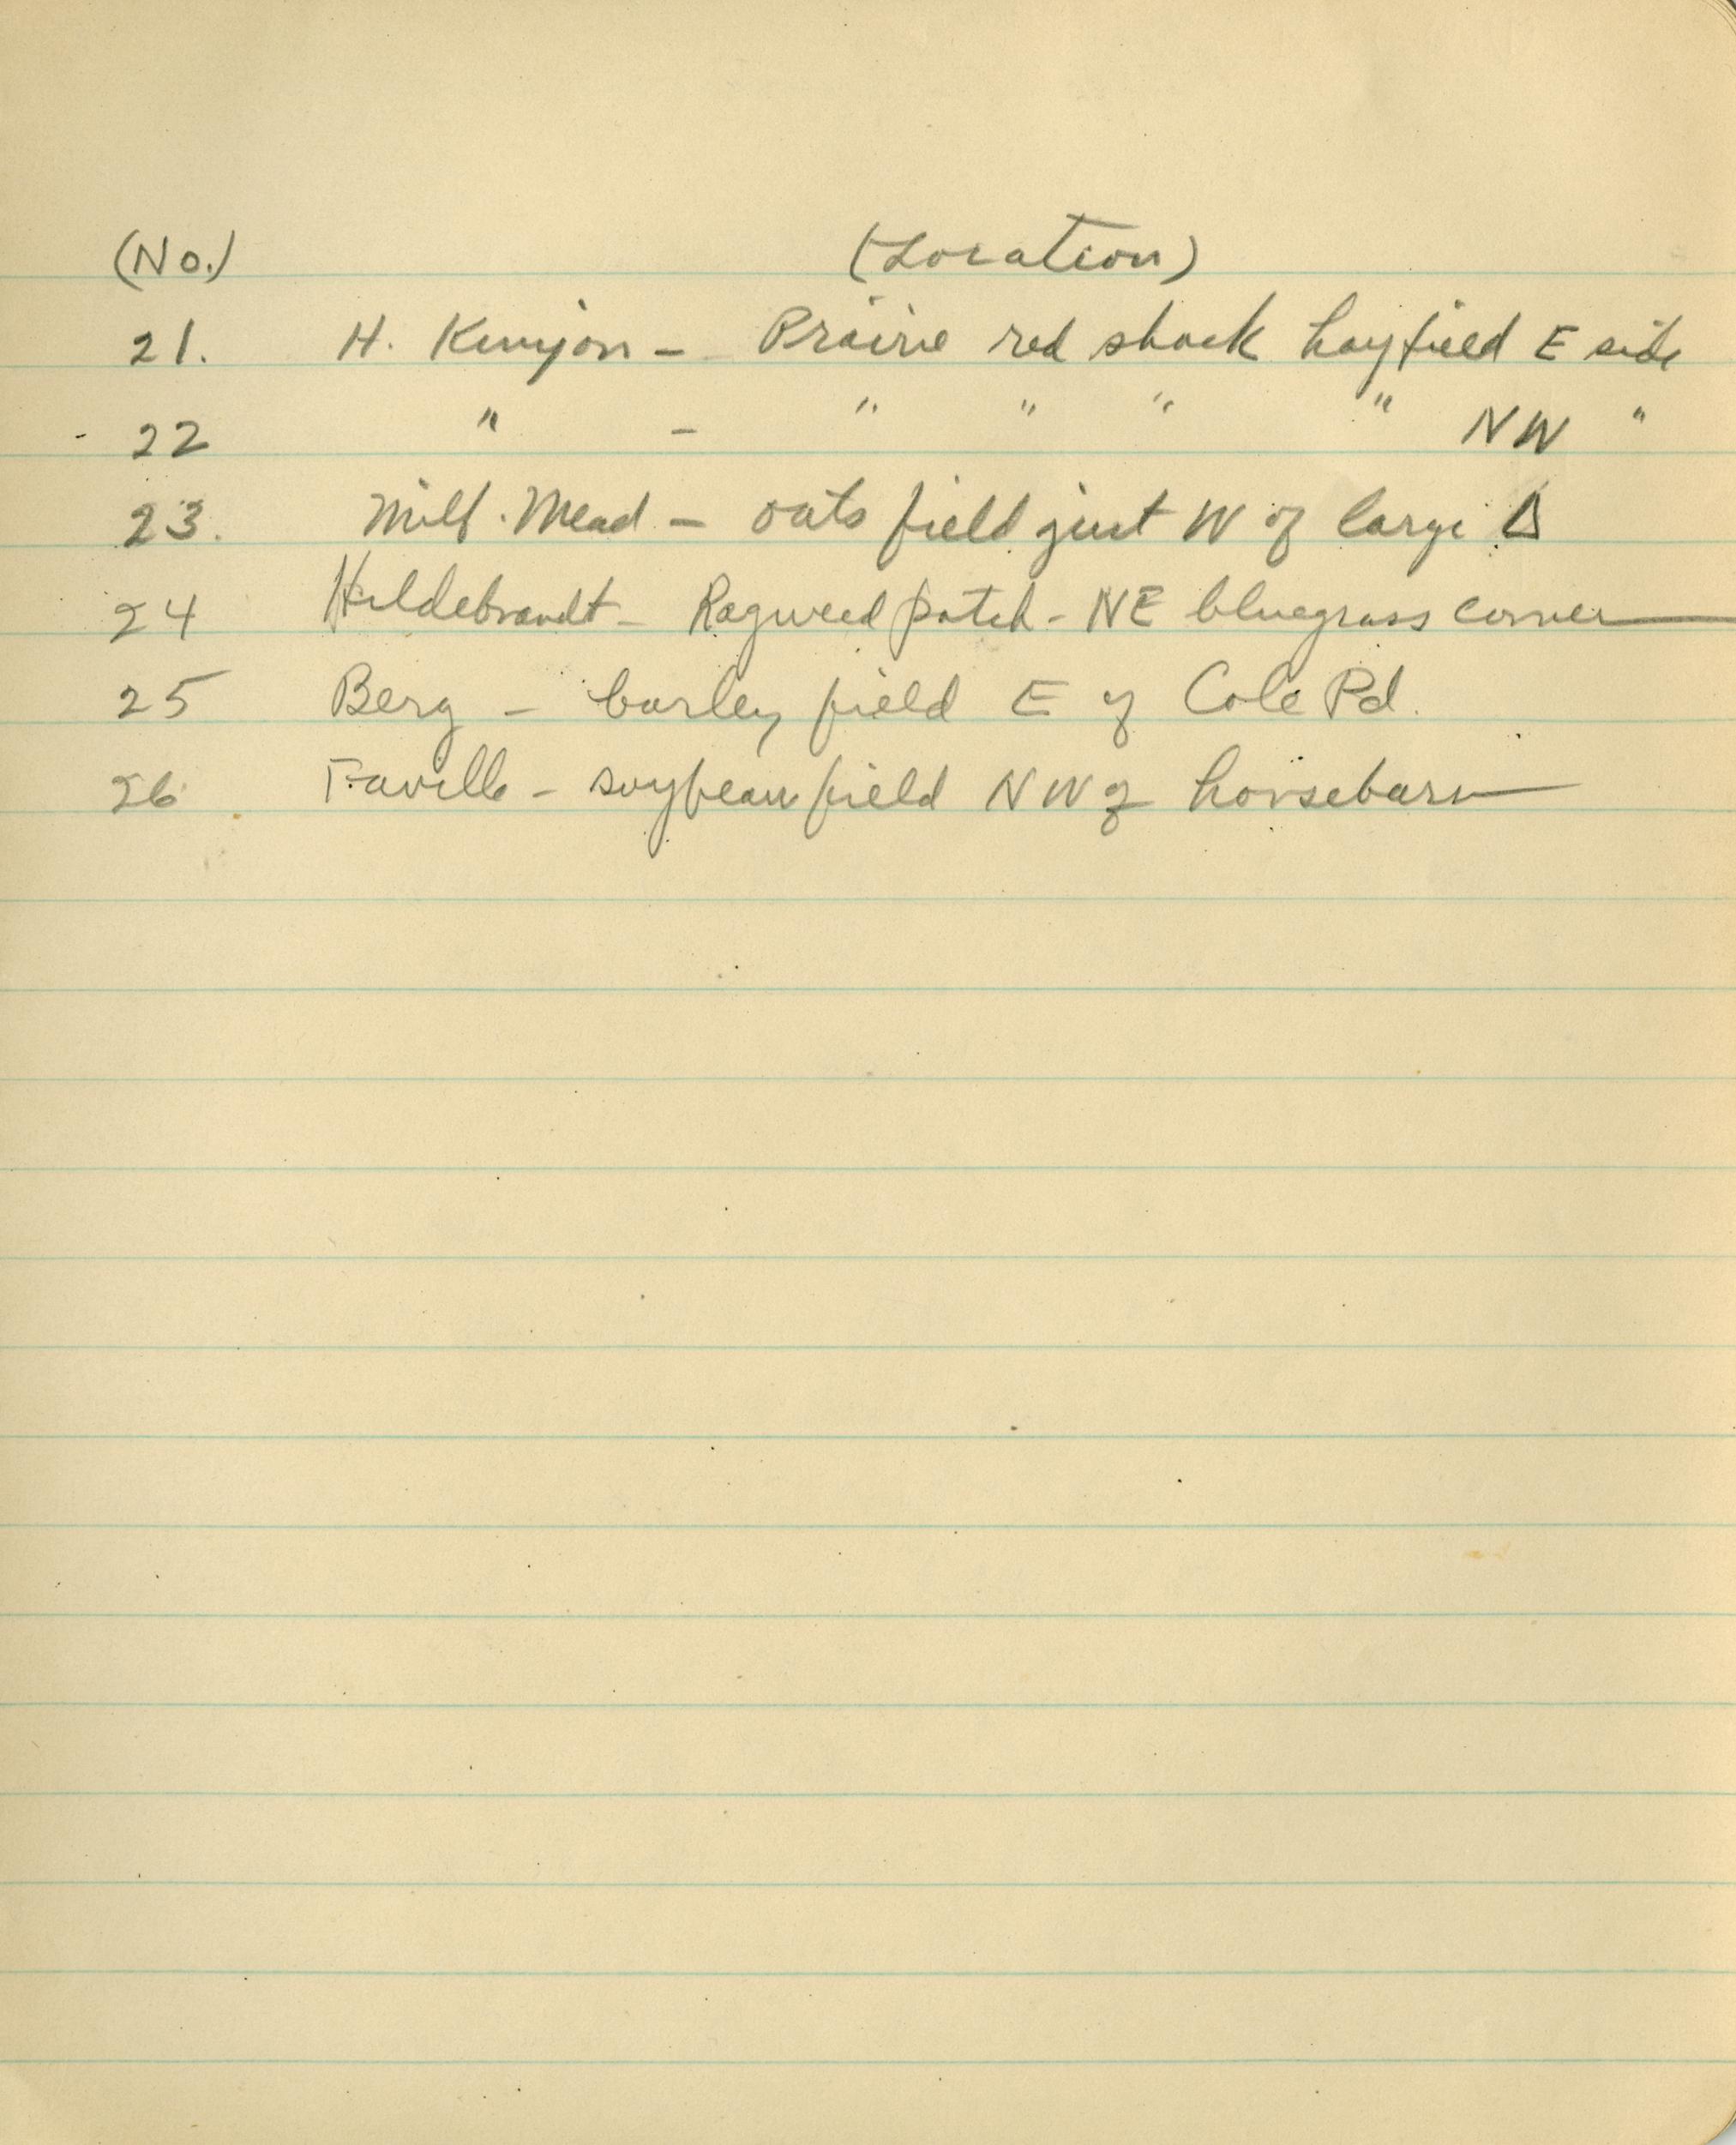 (No.) (Location)
21. H. Kenyon - Prairie red shack hayfield E side
22 " - " " " " NW "
23. Milf. Mead - oats field just W of large Δ
24 Hildebrandt - Ragweed patch - NE bluegrass corner
25 Berg - barley field E of Cole Pd.
26 Faville - soybean field NW of horsebarn